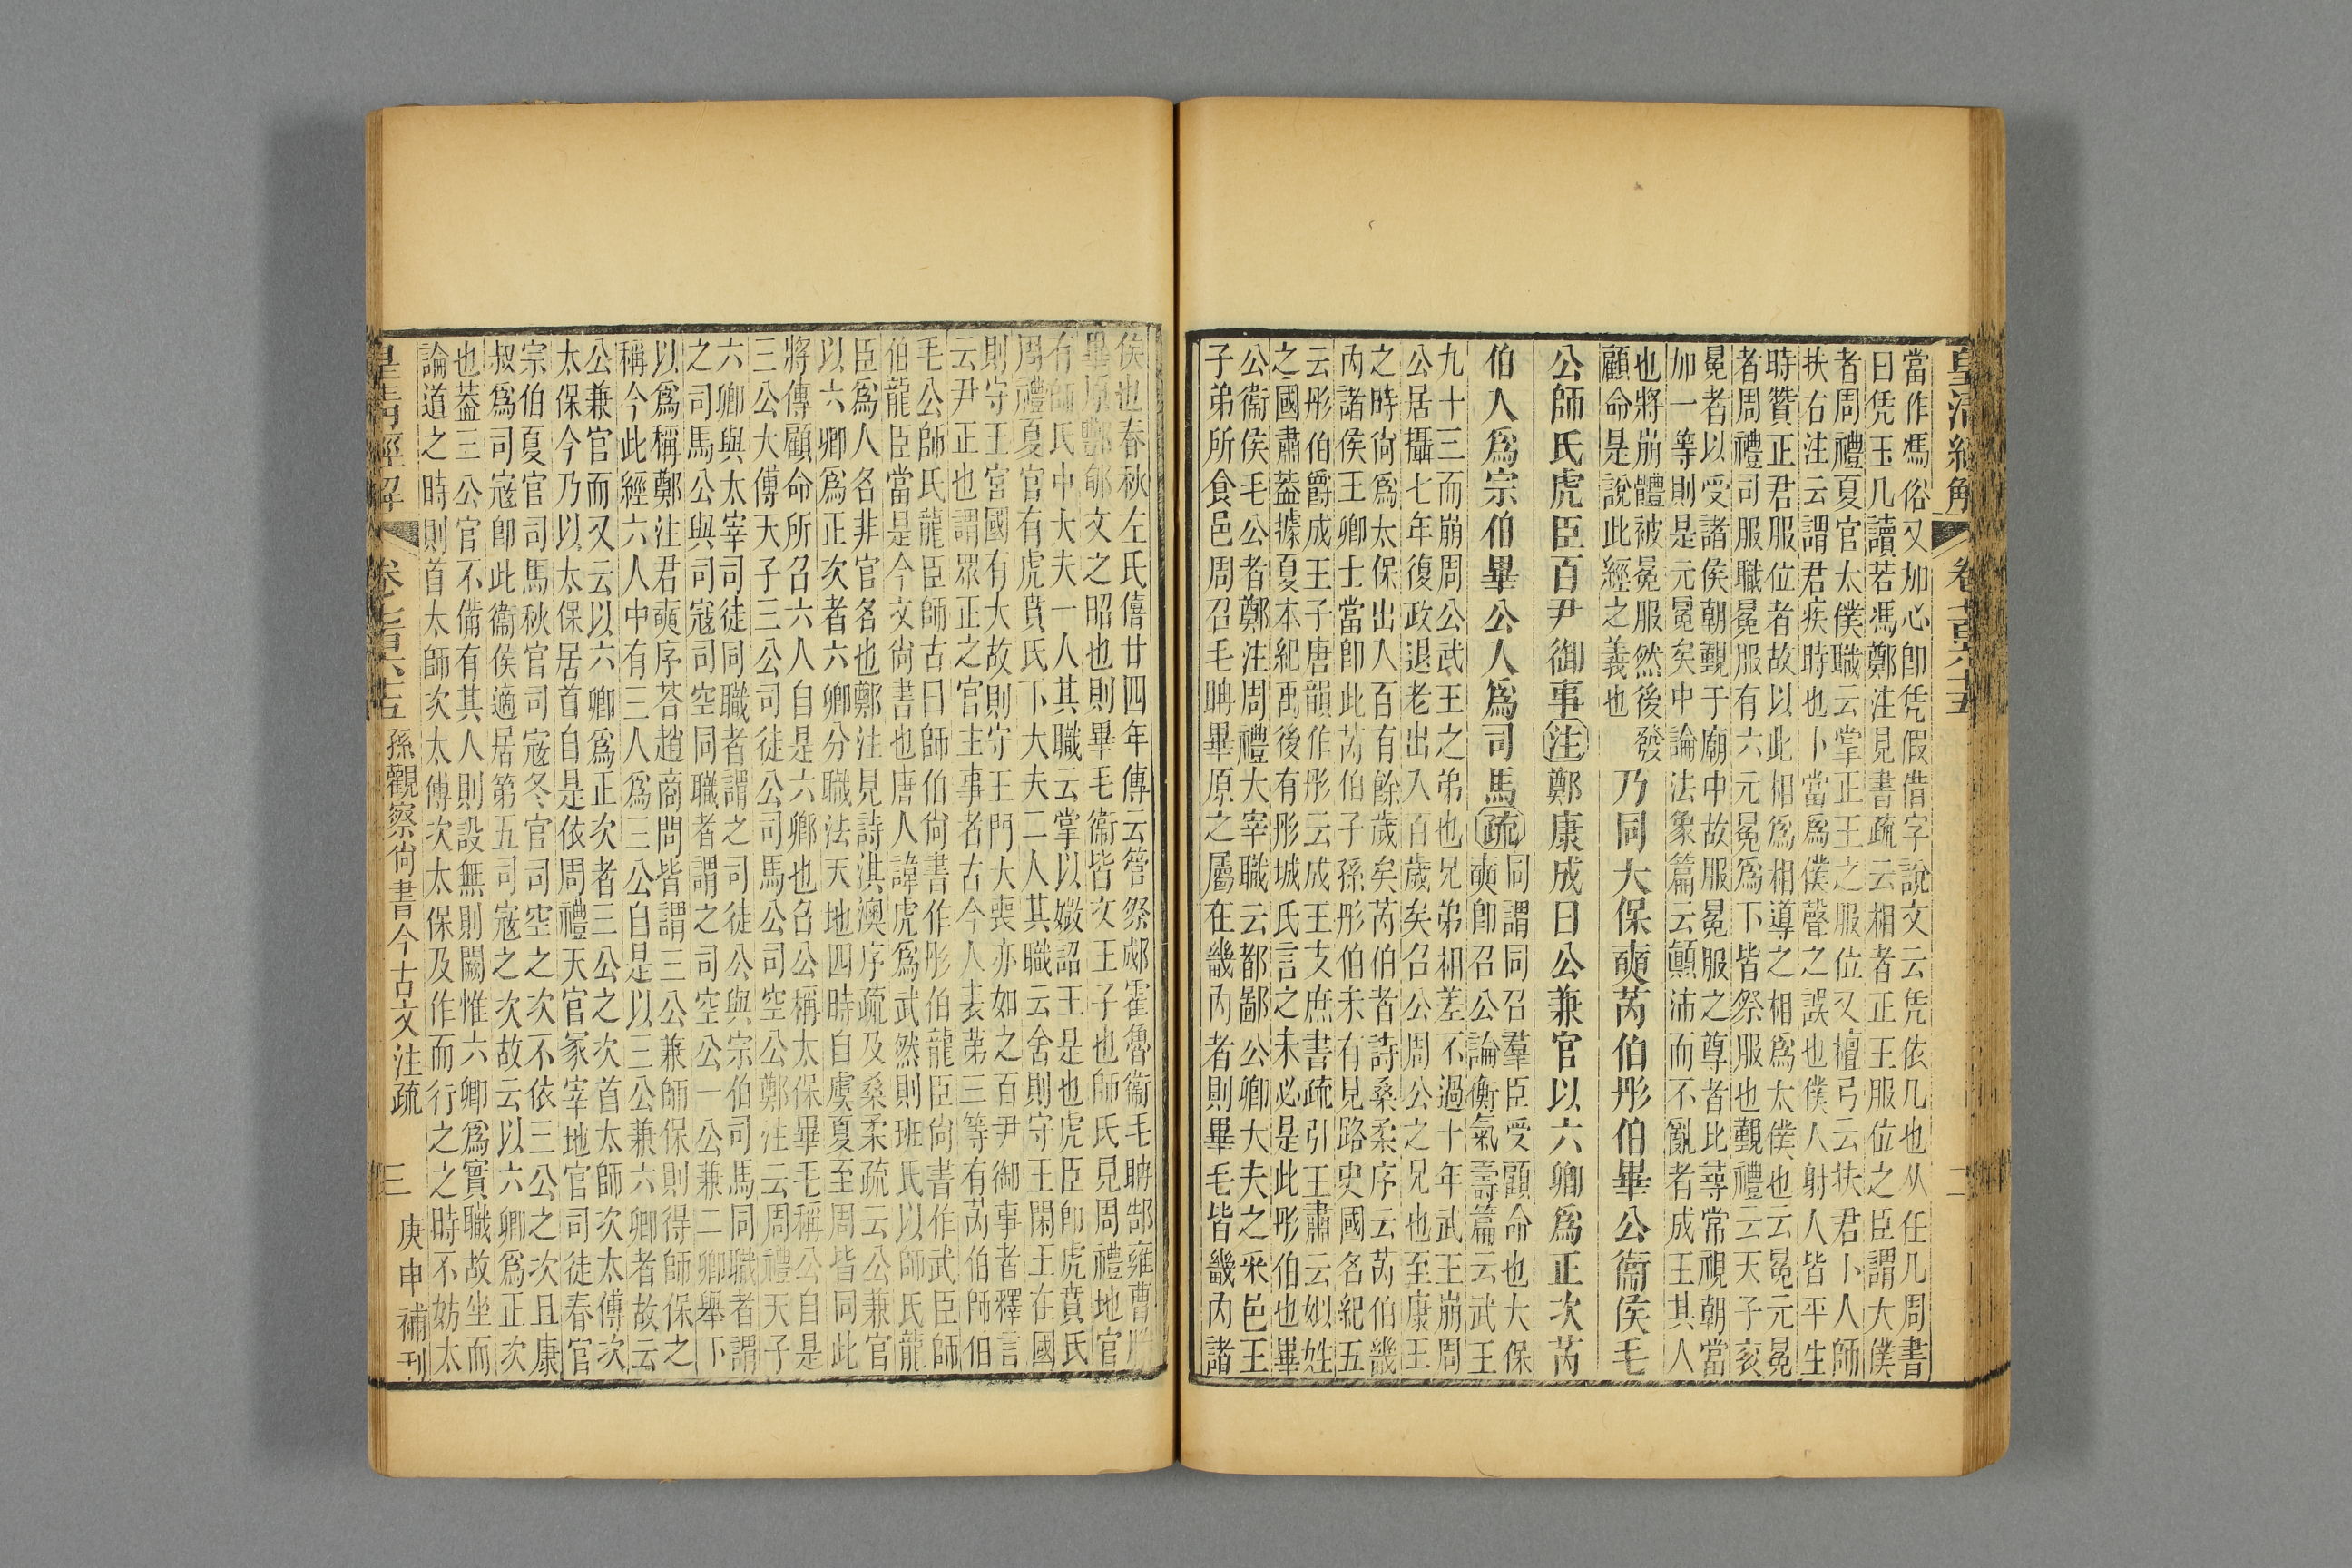 皇清經解 卷七百六十五 二
當作馮俗又加心卽凭假借字說文云凭依几也从任几周書
曰凭玉几讀若馮鄭注見書疏云相者正王服位之臣謂大僕
者周禮夏官太僕職云掌正王之服位又檀弓云扶君卜人師
扶右注云謂君疾時也卜當爲僕聲之誤也僕人射人皆平生
時贊正君服位者故以此相爲相導之相爲太僕也云冕元冕
者周禮司服職冕服有六元冕爲下皆祭服也覲禮云天子衮
冕者以受諸侯朝覲于廟中故服冕服之尊者比尋常視朝當
加一等則是元冕矣中論法象篇云顚沛而不亂者成王其人
也將崩體被冕服然後發
顧命是說此經之義也
乃同大保奭芮伯彤伯畢公衞侯毛
公師氏虎臣百尹御事注鄭康成曰公兼官以六卿爲正次芮
伯入爲宗伯畢公入爲司馬疏
同謂同召羣臣受顧命也大保
奭卽召公論衡氣壽篇云武王
九十三而崩周公武王之弟也兄弟相差不過十年武王崩周
公居攝七年復政退老出入百歲矣召公周公之兄也至康王
之時尙爲太保出入百有餘歲矣芮伯者詩桑柔序云芮伯畿
內諸侯王卿士當卽此芮伯子孫彤伯未有見路史國名紀五
云彤伯爵成王子唐韻作彤云成王支庶書疏引王肅云姒姓
之國肅葢據夏本紀禹後有彤城氏言之未必是此彤伯也畢
公衞侯毛公者鄭注周禮大宰職云都鄙公卿大夫之采邑王
子弟所食邑周召毛聃畢原之屬在畿內者則畢毛皆畿內諸
侯也春秋左氏僖廿四年傳云管祭郕霍魯衞毛聃郜雍曹滕
畢原酆郇文之昭也則畢毛衞皆文王子也師氏見周禮地官
有師氏中大夫一人其職云掌以媺詔王是也虎臣卽虎賁氏
周禮夏官有虎賁氏下大夫二人其職云舍則守王閑王在國
則守王宮國有大故則守王門大喪亦如之百尹御事者釋言
云尹正也謂眾正之官主事者古今人表第三等有芮伯師伯
毛公師氏龍臣師古曰師伯尙書作彤伯龍臣尙書作武臣師
伯龍臣當是今文尙書也唐人諱虎爲武然則班氏以師氏龍
臣爲人名非官名也鄭注見詩淇澳序疏及桑柔疏云公兼官
以六卿爲正次者六卿分職法天地四時自虞夏至周皆同此
將傳顧命所召六人自是六卿也召公稱太保畢毛稱公自是
三公大傳天子三公司徒公司馬公司空公鄭注云周禮天子
六卿與太宰司徒同職者謂之司徒公與宗伯司馬同職者謂
之司馬公與司寇司空同職者謂之司空公一公兼二卿舉下
以爲稱鄭注君奭序荅趙商問皆謂三公兼師保則得師保之
稱今此經六人中有三人爲三公自是以三公兼六卿者故云
公兼官而又云以六卿爲正次者三公之次首太師次太傅次
太保今乃以太保居首自是依周禮天官冢宰地官司徒春官
宗伯夏官司馬秋官司寇冬官司空之次不依三公之次且康
叔爲司寇卽此衞侯適居第五司寇之次故云以六卿爲正次
也葢三公官不備有其人則設無則闕惟六卿爲實職故坐而
論道之時則首太師次太傅次太保及作而行之之時不妨太
皇清經解 卷七百六十五 孫觀察尙書今古文注疏 三 庚申補刊